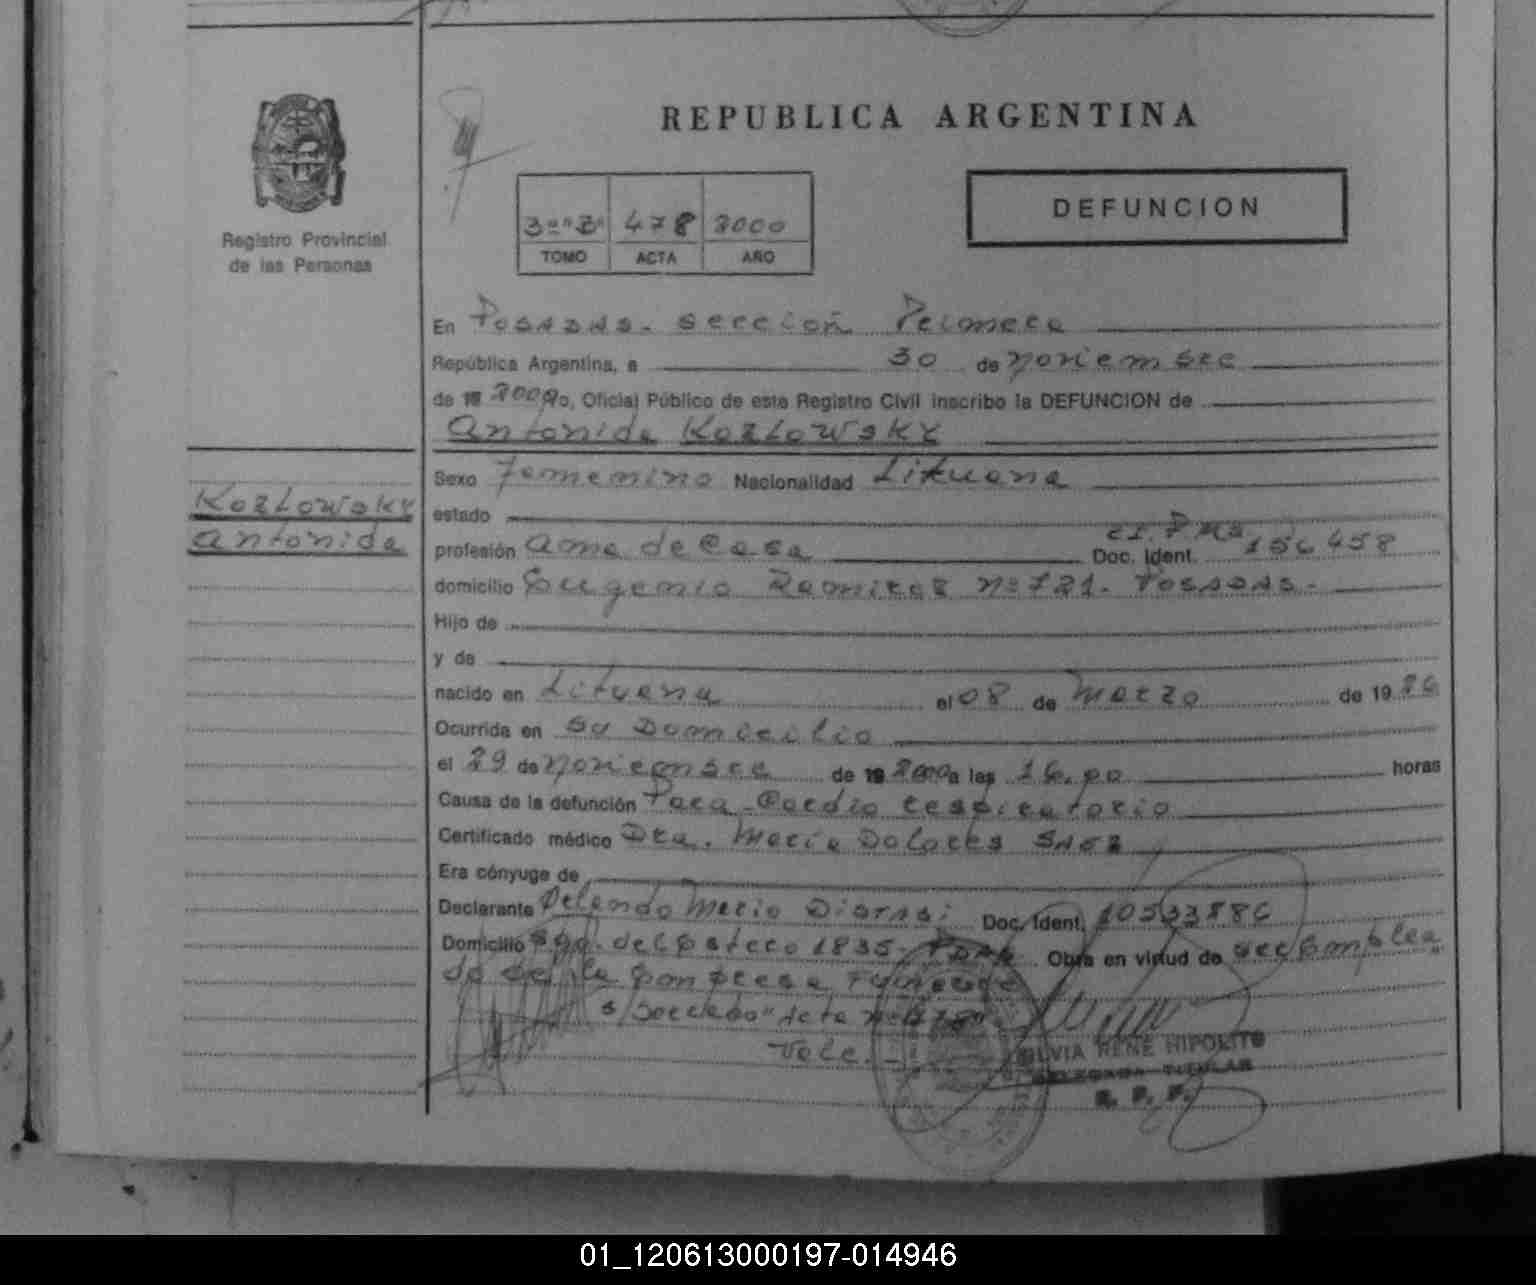 REPUBLICA ARGENTINA
DEFUNCION
Registro Provincial
de las Personas
3º "B" 478 2000
TOMO ACTA AÑO
En Posadas - Sección Primera
República Argentina, a 30 de noviembre
de 19 2000 Yo, Oficial Público de este Registro Civil inscribo la DEFUNCION de
Antonida Kozlowsky
Kozlowsky
Antonida
Sexo Femenino Nacionalidad Lituana
estado
profesión Ama de Casa Doc. Ident. CI. P. Ms 156458
domicilio Eugenio Ramirez nº 721 - Posadas -
Hijo de
y de
nacido en Lituana el 08 de Marzo de 19 26
Ocurrida en su Domicilio
el 29 de noviembre de 19 2000 a las 16.00 horas
Causa de la defunción Paro - Cardio respiratorio
Certificado médico Dra. Maria Dolores Saez
Era cónyuge de
Declarante Orlando Mario Doc. Ident. 10533886
Domicilio del 1835 - Obra en virtud de ser emplea
do de la empresa Funebre
s/borrado "acta nº 478"
Vale. -
SILVIA RENE HIPOLITO
DELEGADA TITULAR
R. P. P.
01_120613000197-014946